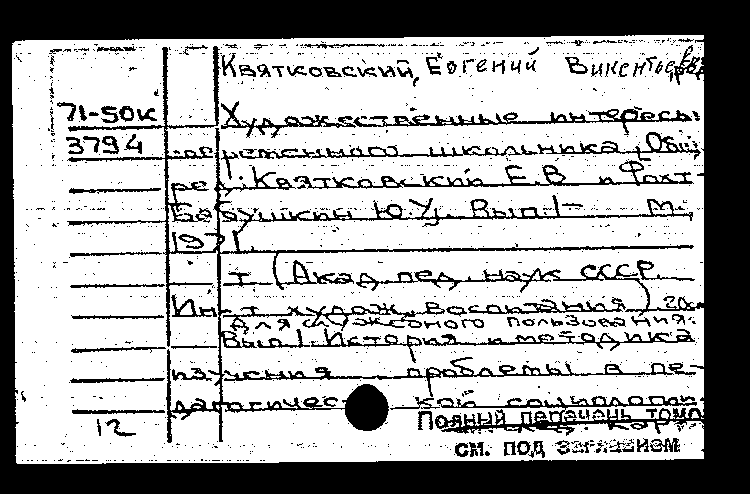 Квятковский, Евгений Викентьев
71-50к Художественные интересы
3794 современного школьника, Общ.
ред.: Квятковский Е.В и Фохт-
Бабушкин Ю.У. Вып. 1- М.,
1971.
т (Акад. пед. наук СССР.
Ин-т худож. воспитания) 20см
Для служебного пользования.
Вып 1. История и методика
изучения проблемы в пе-
дагогичес кой социологии
12 Полный перечень томо
см. под заглавием